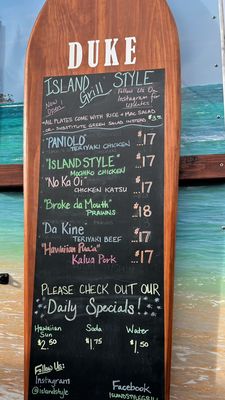 DUKE
ISLAND STYLE
Grill
Now
Open
Follow Us on
Instagram for
Updates
*ALL PLATES COME WITH RICE & MAC SALAD
-OR- SUBSTITUTE GREEN SALAD INSTEAD $3.00
"PANIOLO" ...$17
TERIYAKI CHICKEN
"ISLAND STYLE" ...$17
MOCHIKO CHICKEN
"No Ka Oi" ...$17
CHICKEN KATSU
"Broke da Mouth" ...$18
PRAWNS
"Da Kine ...$17
TERIYAKI BEEF
"Hawaiian Pua'a" ...$17
Kalua Pork
PLEASE CHECK OUT OUR
Daily Specials!
Hawaiian Soda Water
Sun $1.75 $1.50
$2.50
Follow Us:
Instagram Facebook
@islandstyle ISLANDSTYLEGRILL